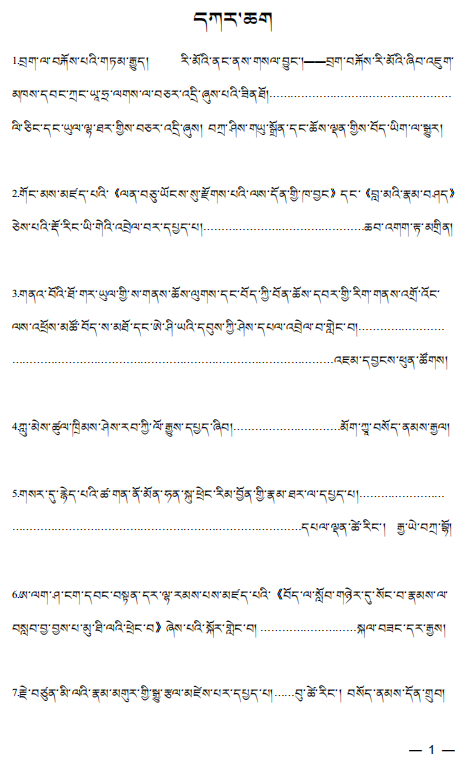 དཀར་ཆག
1.བྲག་ལ་བརྐོས་པའི་གཏམ་རྒྱུད། རི་མོའི་ནང་ནས་གསལ་བྱུང་།——བྲག་བརྐོས་རི་མོའི་ཞིབ་འཇུག་
མཁས་དབང་ཀྲང་ཡཱ་ཧྲ་ལགས་ལ་བཅར་འདྲི་ཞུས་པའི་ཟིན་ཐོ།……………………………………………
ལི་ཅིང་དང་ཡུལ་ལྷ་ཐར་གྱིས་བཅར་འདྲི་ཞུས། བཀྲ་ཤིས་གཡུ་སྒྲོན་དང་ཆོས་ལྡན་གྱིས་བོད་ཡིག་ལ་སྒྱུར།
2.གོང་མས་མཛད་པའི་《ལན་བཅུ་ཡོངས་སུ་རྫོགས་པའི་ལས་དོན་གྱི་ཁ་བྱང》དང་《བླ་མའི་རྣམ་བཤད》
ཅེས་པའི་རྡོ་རིང་ཡི་གེའི་འབྲེལ་བར་དཔྱད་པ།………………………………………ཆབ་འགག་རྟ་མགྲིན།
3.གནའ་བོའི་ཐོ་གར་ཡུལ་གྱི་ས་གནས་ཆོས་ལུགས་དང་བོད་ཀྱི་བོན་ཆོས་དབར་གྱི་རིག་གནས་འགྲོ་འོང་
ལས་འཕྲོས་མཚོ་བོད་ས་མཐོ་དང་ཨེ་ཤི་ཡའི་དབུས་ཀྱི་ཤེས་དཔལ་འབྲེལ་བ་གླེང་བ།……………………
………………………………………………………………………………འཇམ་དབྱངས་ཕུན་ཚོགས།
4.ཀླུ་མེས་ཚུལ་ཁྲིམས་ཤེས་རབ་ཀྱི་ལོ་རྒྱུས་དཔྱད་ཞིབ།…………………………མོག་ཀྱཱ་བསོད་ནམས་རྒྱལ།
5.གསར་དུ་རྙེད་པའི་ཚ་གན་ནོ་མོན་ཧན་སྐུ་ཕྲེང་རིམ་བྱོན་གྱི་རྣམ་ཐར་ལ་དཔྱད་པ།……………………
………………………………………………………………………དཔལ་ལྡན་ཚེ་རིང་། རྒྱ་ཡེ་བཀྲ་བྷོ།
6.ཨ་ལག་ཤ་ངག་དབང་བསྟན་དར་ལྷ་རམས་པས་མཛད་པའི་《བོད་ལ་སློབ་གཉེར་དུ་སོང་བ་རྣམས་ལ་
བསླབ་བྱ་བྱས་པ་མུ་ཐི་ལའི་ཕྲེང་བ》ཞེས་པའི་སྐོར་གླེང་བ། ………………………སྐལ་བཟང་དར་རྒྱས།
7.རྗེ་བཙུན་མི་ལའི་རྣམ་མགུར་གྱི་སྒྱུ་རྩལ་མཛེས་པར་དཔྱད་པ།……བུ་ཚེ་རིང་། བསོད་ནམས་དོན་གྲུབ།
— 1 —